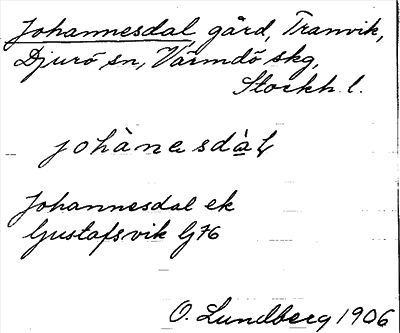 Johannesdal gård, Tranvik,
Djurö sn, Värmdö skg,
Stockh. l.
johànesdàł
Johannesdal ek
Gustafsvik Gj76
O. Lundberg 1906